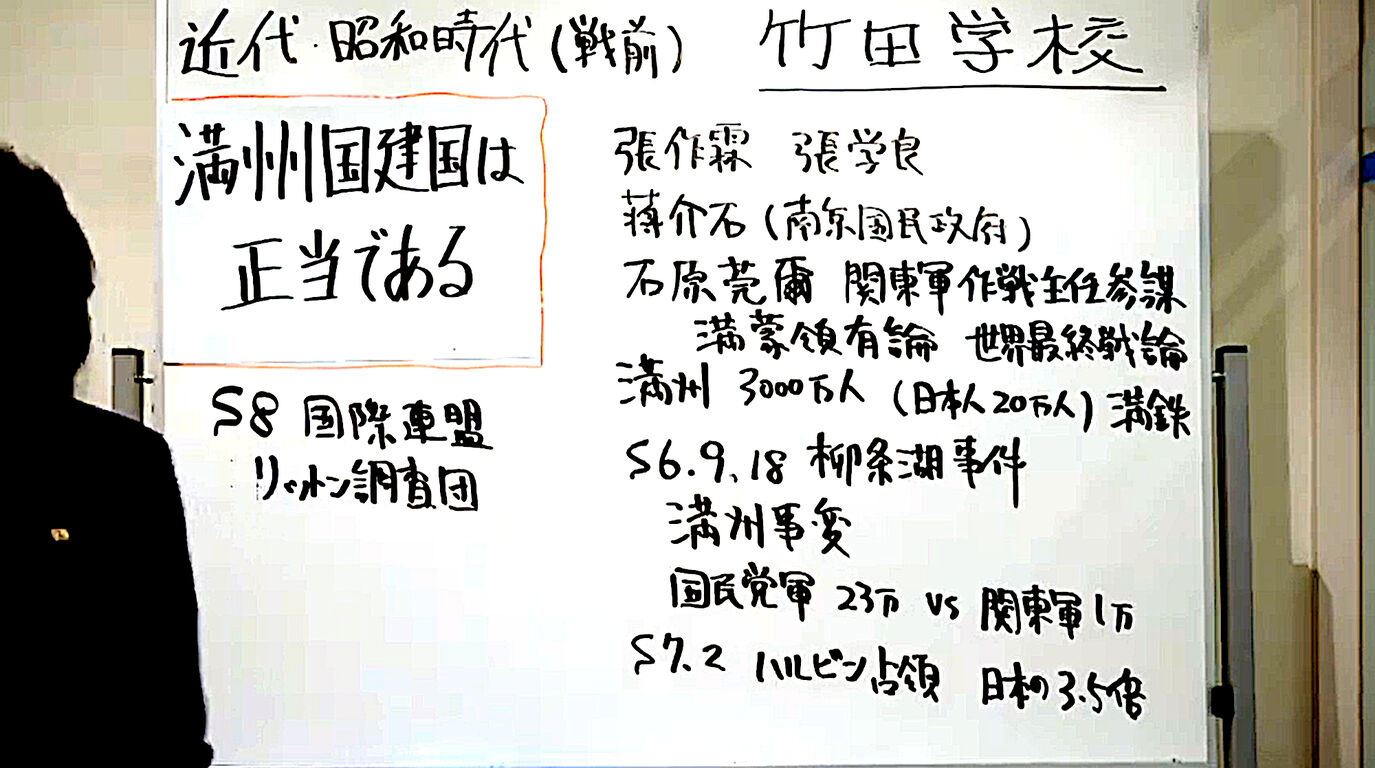 近代・昭和時代(戦前)
竹田学校
満州国建国は
正当である
S8 国際連盟
リットン調査団
張作霖 張学良
蒋介石(南京国民政府)
石原莞爾 関東軍作戦主任参謀
満蒙領有論 世界最終戦論
満州 3000万人(日本人20万人)満鉄
S6.9.18 柳条湖事件
満州事変
国民党軍 23万 vs 関東軍1万
S7.2 ハルビン占領 日本の3.5倍